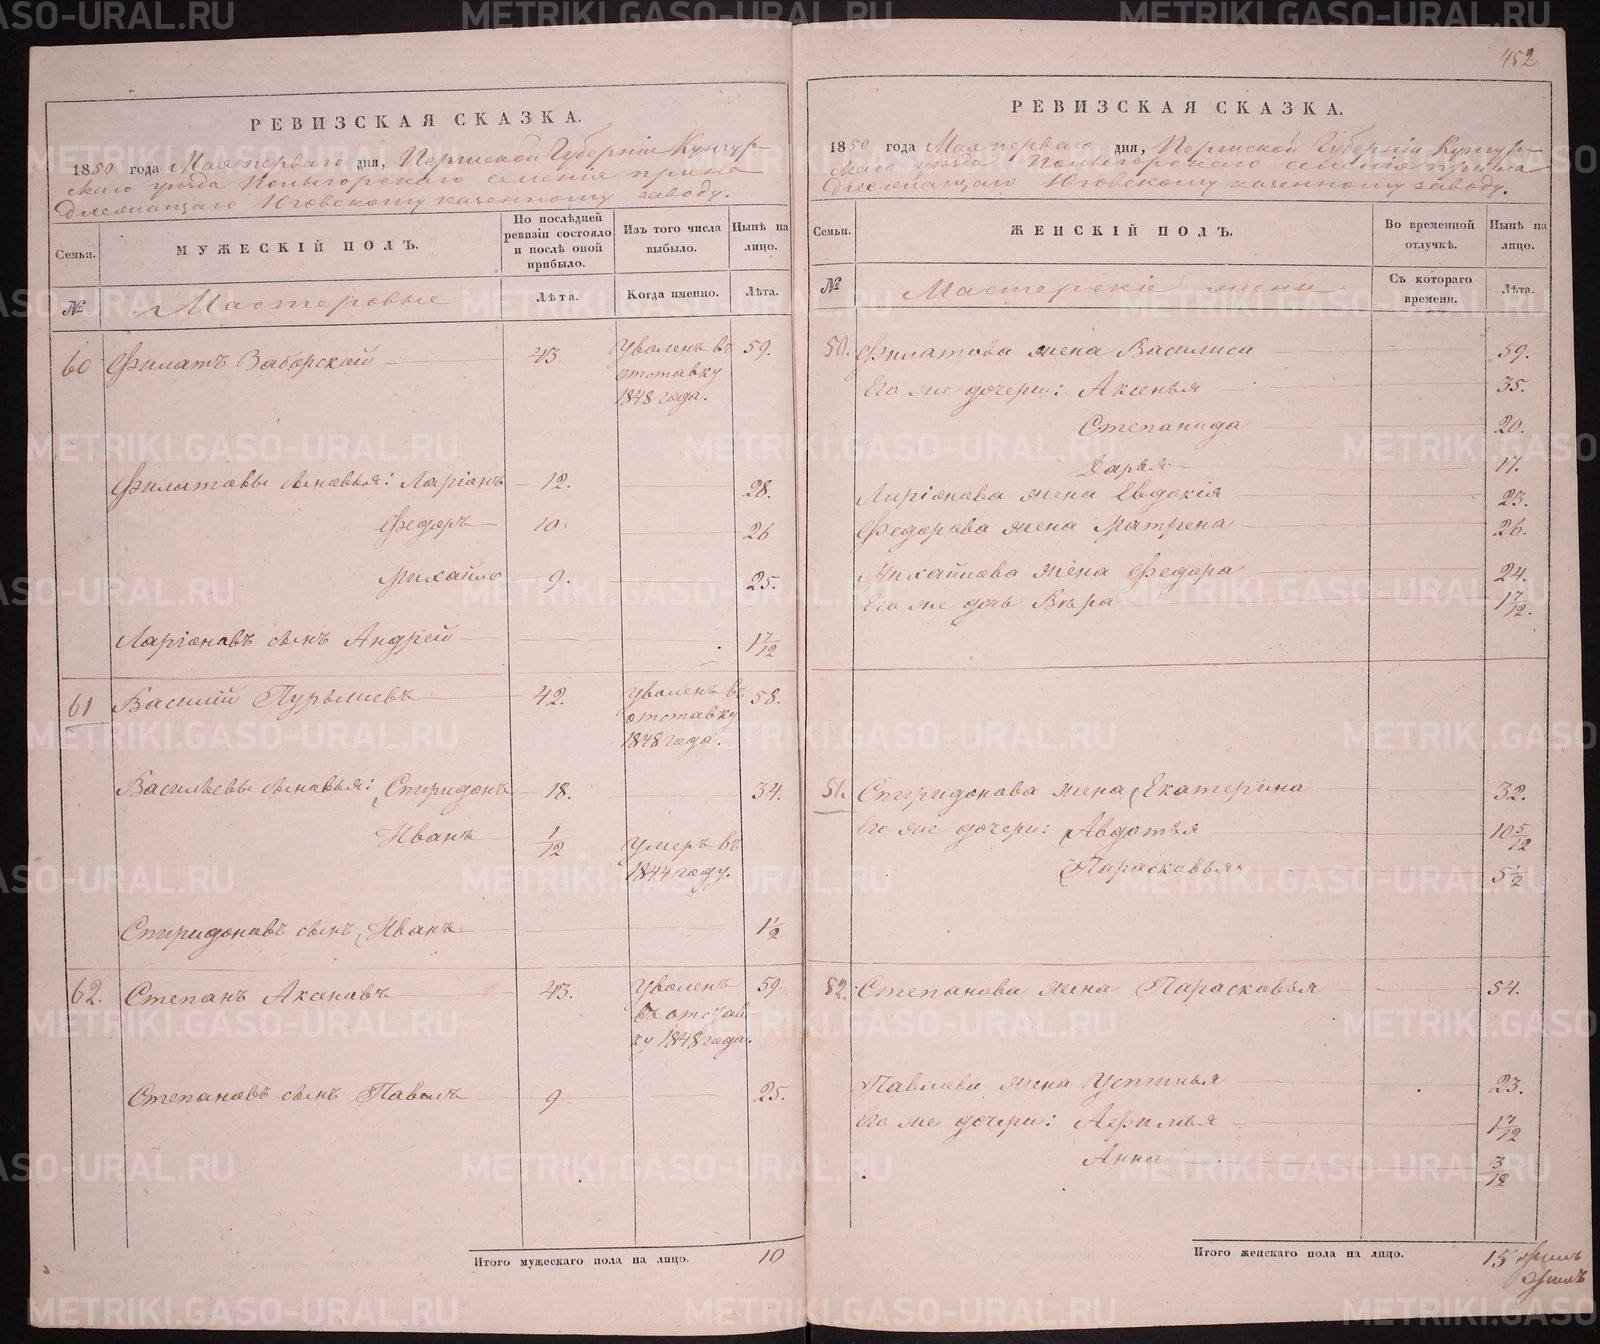 452
РЕВИЗСКАЯ СКАЗКА.
1850 года Мая перваго дня, Пермской Губерніи Кунгур-
скаго уѣзда селенія прина
длежащаго Юговскому казенному заводу.
Семьи.
МУЖЕСКІЙ ПОЛЪ.
По послѣдней ревизіи состояло и послѣ оной прибыло.
Изъ того числа выбыло.
Нынѣ на лицо.
№
Мастеровые
Лѣта.
Когда именно.
Лѣта.
60 Филатъ Заборской 43. Уволенъ въ 59.
отставку
1848 года.
Филатовы сыновья: Ларіонъ 12. 28.
Федоръ 10. 26
Михайло 9. 25.
Ларіоновъ сынъ Андрей 1 7/12
61 Василій 42. Уволенъ въ 58.
отставку
1848 года.
Васильевы сыновья: Спиридонъ 18. 34.
Иванъ 1/12 Умеръ въ
1844 году.
Спиридоновъ сынъ Иванъ 1 1/2
62. Степанъ Аксеновъ 43. Уволенъ 59.
въ отстав-
ку 1848 года.
Степановъ сынъ Павелъ 9 25.
Итого мужескаго пола на лицо. 10
РЕВИЗСКАЯ СКАЗКА.
1850 года Мая перваго дня, Пермской Губерніи Кунгур-
скаго уѣзда селенія прина
длежащаго Юговскому казенному заводу.
Семьи.
ЖЕНСКІЙ ПОЛЪ.
Во временной отлучкѣ.
Нынѣ на лицо.
№
Мастерскіе жены
Съ котораго времени.
Лѣта.
50. Филатова жена Василиса 59.
Его же дочери: Аксенья 35.
Степанида 20.
Дарья 17.
Ларіонова жена Евдокія 23.
Федорова жена Матрена 26.
Михайлова жена Федора 24.
Его же дочь Вѣра 1 7/12.
51. Спиридонова жена Екатерина 32.
Его же дочери: Авдотья 10 5/12
Парасковья 5 1/2
52. Степанова жена Парасковья 54.
Павлова жена Устинья 23.
Его же дочери: Афимья 1 7/12
Анна 3/12
Итого женскаго пола на лицо. 15